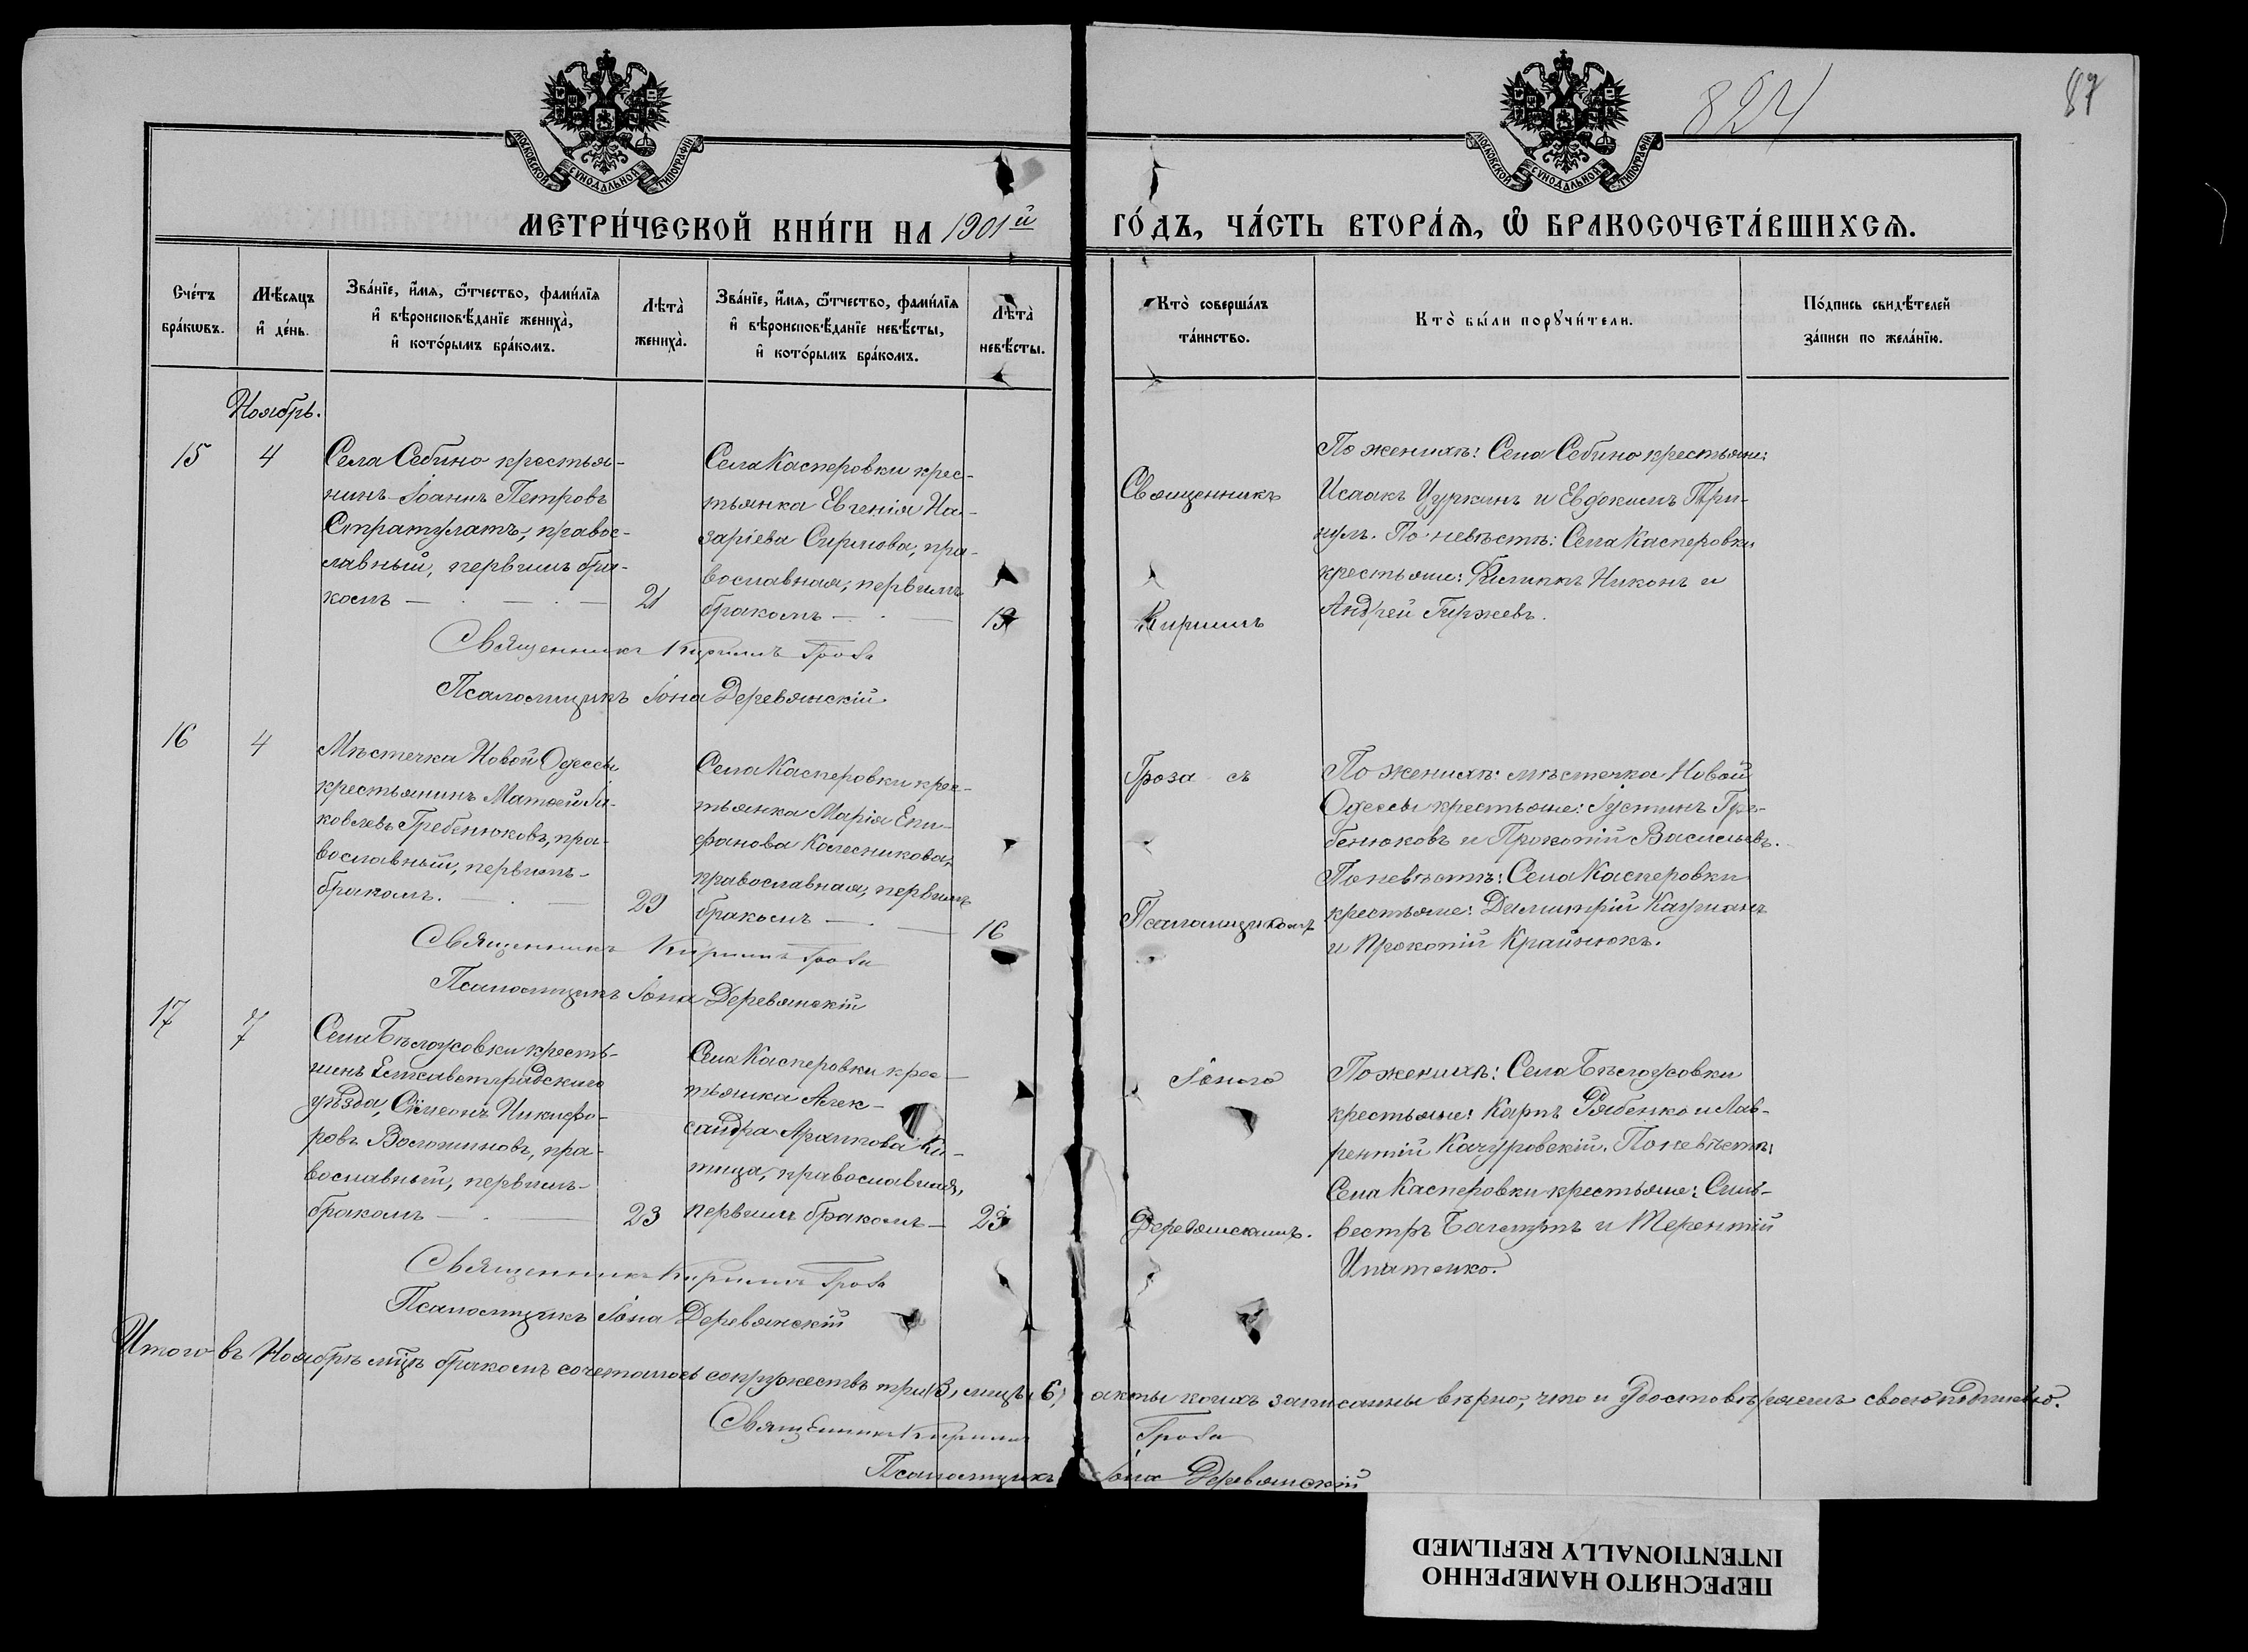 824
87
МОСКОВСКОЙ СУНОДАЛЬНОЙ ТИПОГРАФІИ
МОСКОВСКОЙ СУНОДАЛЬНОЙ ТИПОГРАФІИ
МЕТРИ́ЧЕСКОЙ КНИ́ГИ НА 1901й
ГО́ДЪ, ЧА́СТЬ ВТОРА́Ѧ, Ѽ БРАКОСОЧЕТА́ВШИХСѦ.
Сче́тъ
бра́кѡвъ.
Мѣ́сяцъ
и҆ де́нь.
Зва́нїе, и҆́мя, ѻ҆́тчество, фами́лїя
и҆ вѣроисповѣ́данїе жениха̀,
и҆ кото́рымъ бра́комъ.
Лѣ́та̀
жениха̀.
Зва́нїе, и҆́мя, ѻ҆́тчество, фами́лїя
и҆ вѣроисповѣ́данїе невѣ́сты,
и҆ кото́рымъ бра́комъ.
Лѣ́та̀
невѣ́сты.
Кто̀ соверша́лъ
та́инство.
Кто̀ бы́ли порꙋчи́тели.
По́дпись свидѣ́телей
за́писи по жела́нїю.
Ноябрь.
15
4
Села Себино крестья-
нинъ Іоаннъ Петровъ
Стратулатъ, правос-
лавный, первымъ бра-
комъ — . — . —
21
Села Касперовки крес-
тьянка Евгенія На-
заріева Сирмова, пра-
вославная, первымъ
бракомъ — . —
19
Священникъ Кириллъ Гроза
Псаломщикъ Іона Деревянскій
По женихѣ: Села Себино крестьяне:
Исаакъ Цуркинъ и Евдокимъ Три-
нулъ. По невѣстѣ: Села Касперовки
крестьяне: Филиппъ Никонъ и
Андрей Гиржевъ.
16
4
Мѣстечка Новой Одессы
крестьянинъ Матѳей Іа-
ковлевъ Гребенюковъ, пра-
вославный, первымъ
бракомъ. — . —
29
Села Касперовки крес-
тьянка Марія Епи-
фанова Колесникова,
православная, первымъ
бракомъ — . —
16
Священникъ Кириллъ Гроза
Псаломщикъ Іона Деревянскій
По женихѣ: мѣстечка Новой
Одессы крестьяне: Іустинъ Гре-
бенюковъ и Прокопій Васильевъ.
По невѣстѣ: Села Касперовки
крестьяне: Димитрій Кауманъ
и Прокопій Крайнюкъ.
17
7
Села Бѣлоусовки кресть-
нинъ Елисаветградскаго
уѣзда, Сѵмеонъ Никифо-
ровъ Волошиновъ, пра-
вославный, первымъ
бракомъ — . —
23
Села Касперовки крес-
тьянка Алек-
сандра Архипова Ки-
тица, православная,
первымъ бракомъ —
23
Священникъ Кириллъ Гроза
Псаломщикъ Іона Деревянскій
По женихѣ: Села Бѣлоусовки
крестьяне: Карпъ Рябенко и Лав-
рентій Качуровскій. По невѣстѣ:
Села Касперовки крестьяне: Силь-
вестръ Багатръ и Терентій
Ипатенко.
Священникъ
Кириллъ
Гроза съ
Псаломщикомъ
Іоною
Деревянскимъ.
Итого въ Ноябрѣ мцѣ бракомъ сочеталось супружествъ три (3) лицъ (6) акты коихъ записанны вѣрно, что и удостовѣряемъ своею подписью.
Священникъ Кириллъ Гроза
Псаломщикъ Іона Деревянскій
ПЕРЕСНЯТО НАМЕРЕННО
INTENTIONALLY REFILMED